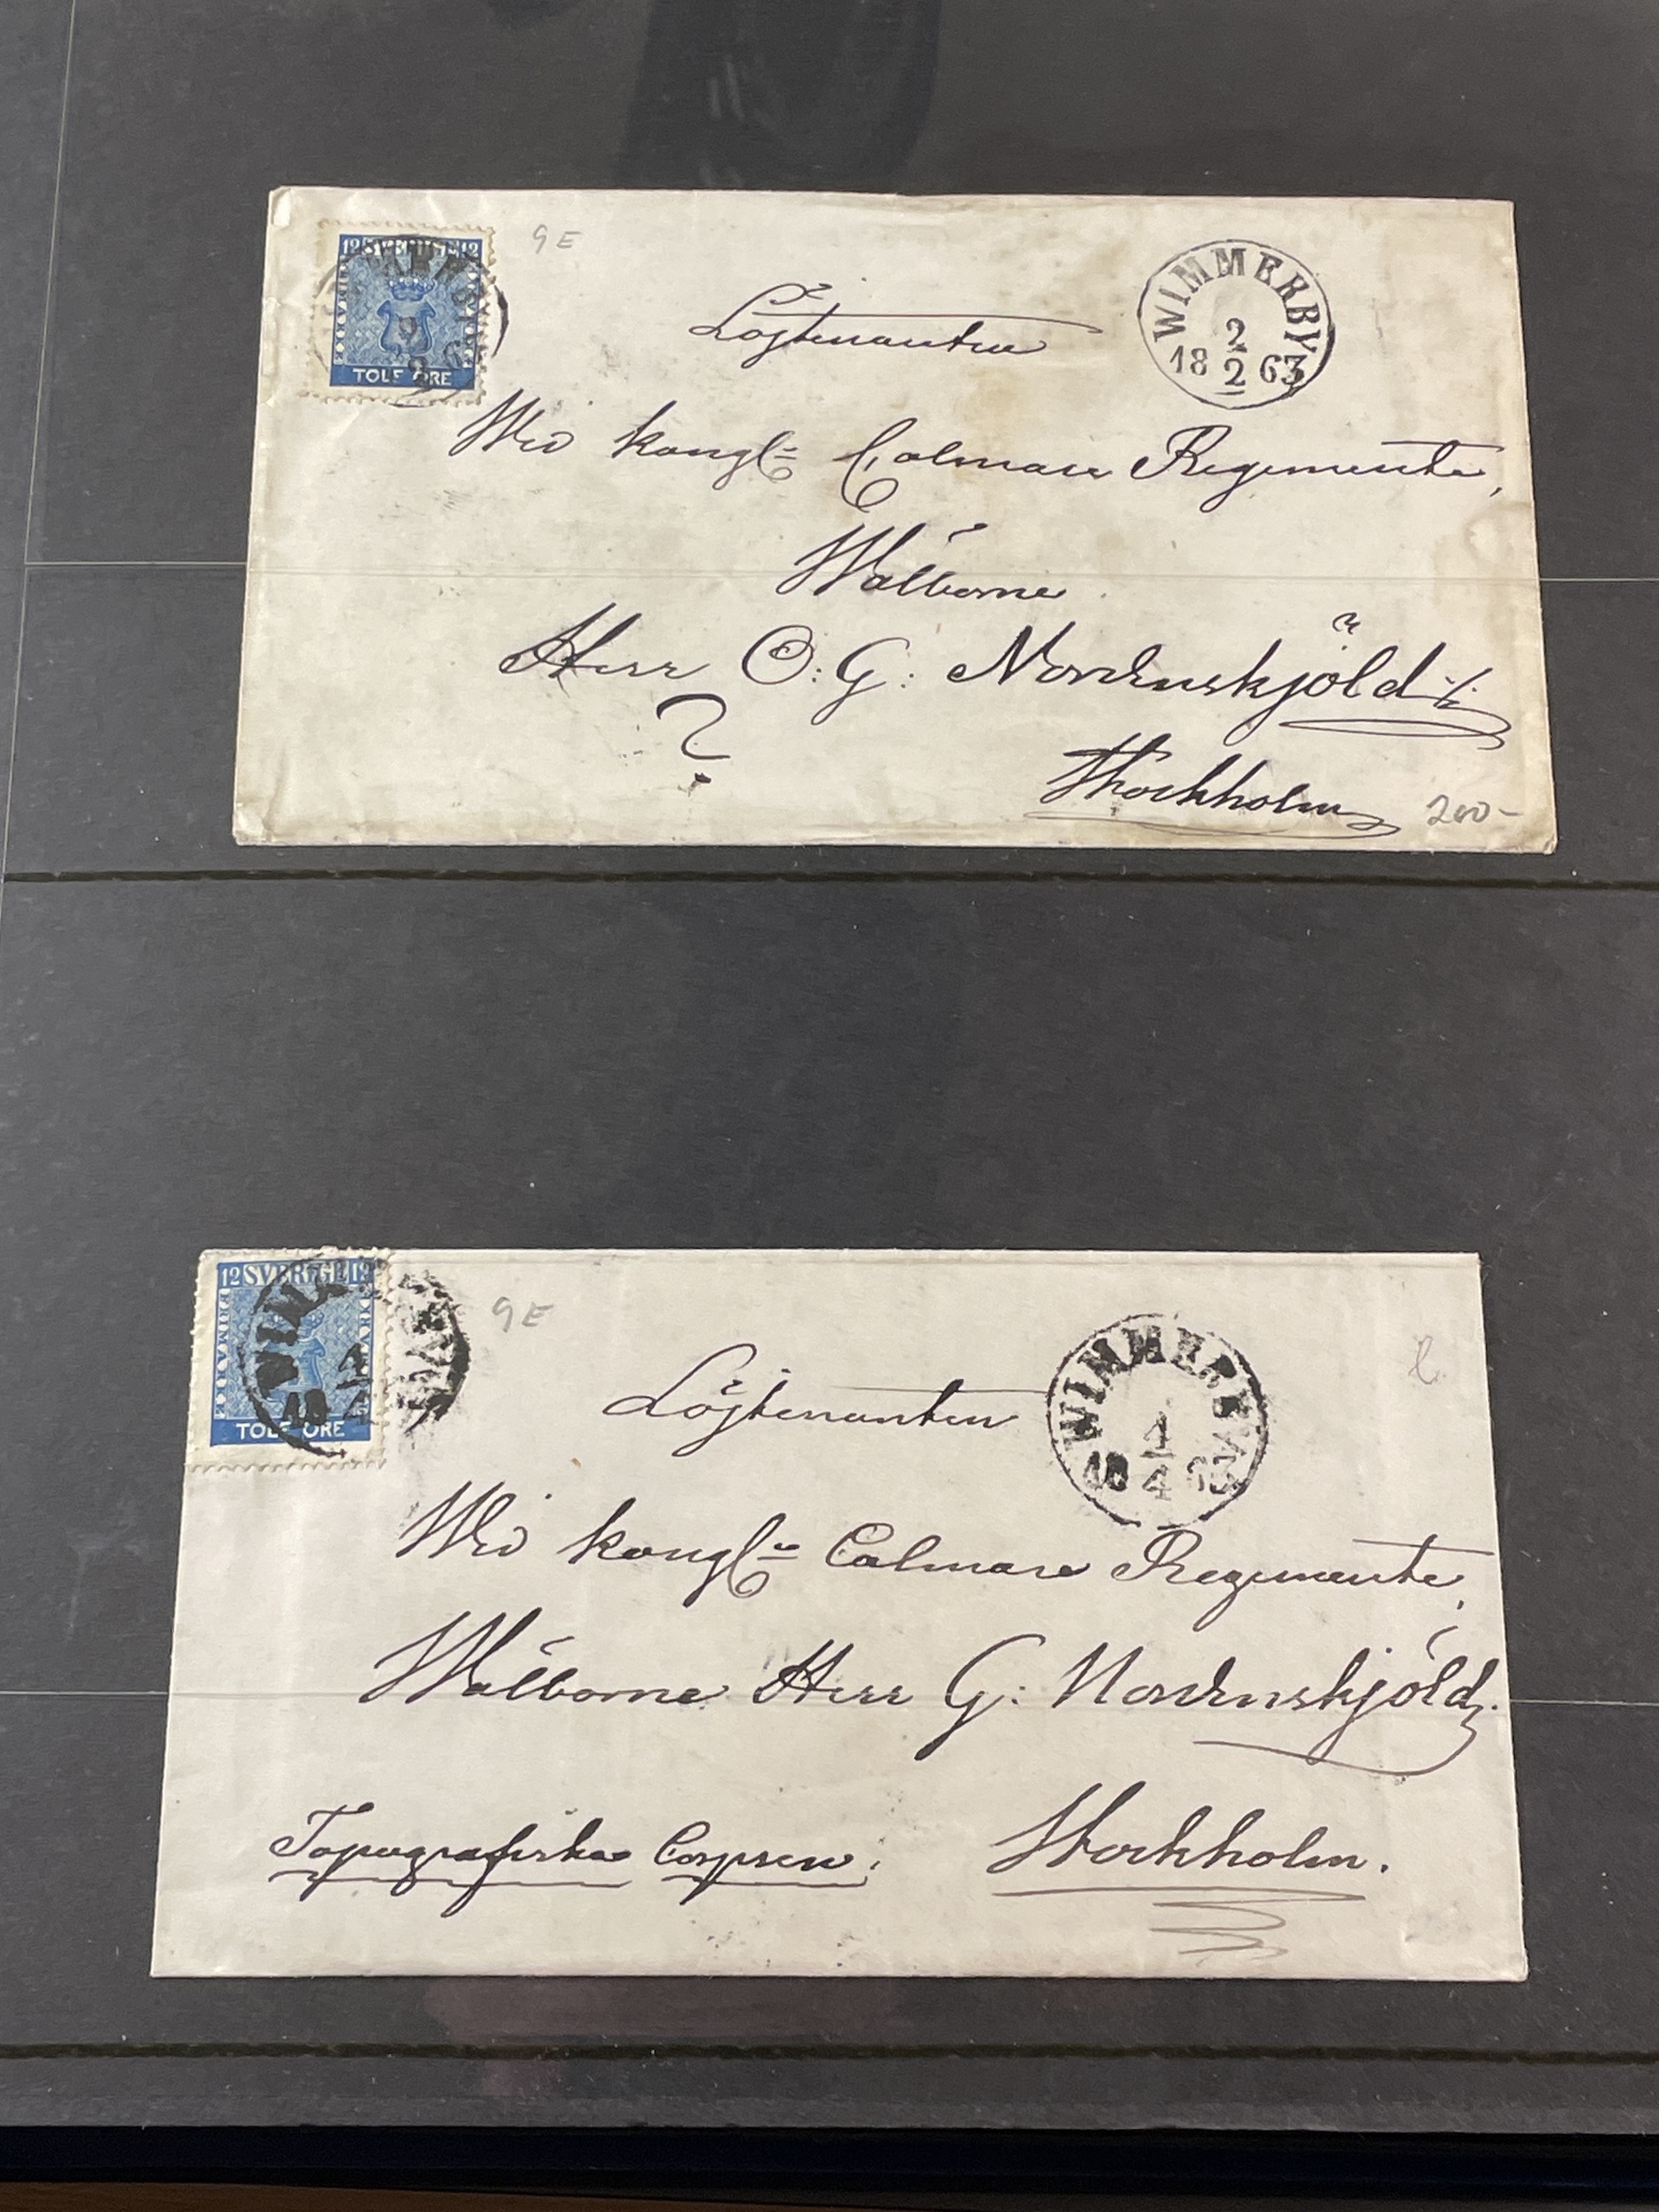 12 SVERIGE 12
TOLF ÖRE
9 E
WIMMERBY
2
18 2 63
Löjtenanten
Wid kongl Calmare Regemente,
Wälborne
Herr O: G: Nordenskjöld
?
Stockholm
200-
12 SVERIGE 12
FRIMÄRKE
TOLF ÖRE
9 E
WIMMERBY
1
18 4 63
Löjtenanten
Wid kongl Calmare Regemente,
Wälborne Herr G: Nordenskjöld.
Topografiska Corpsen,
Stockholm.